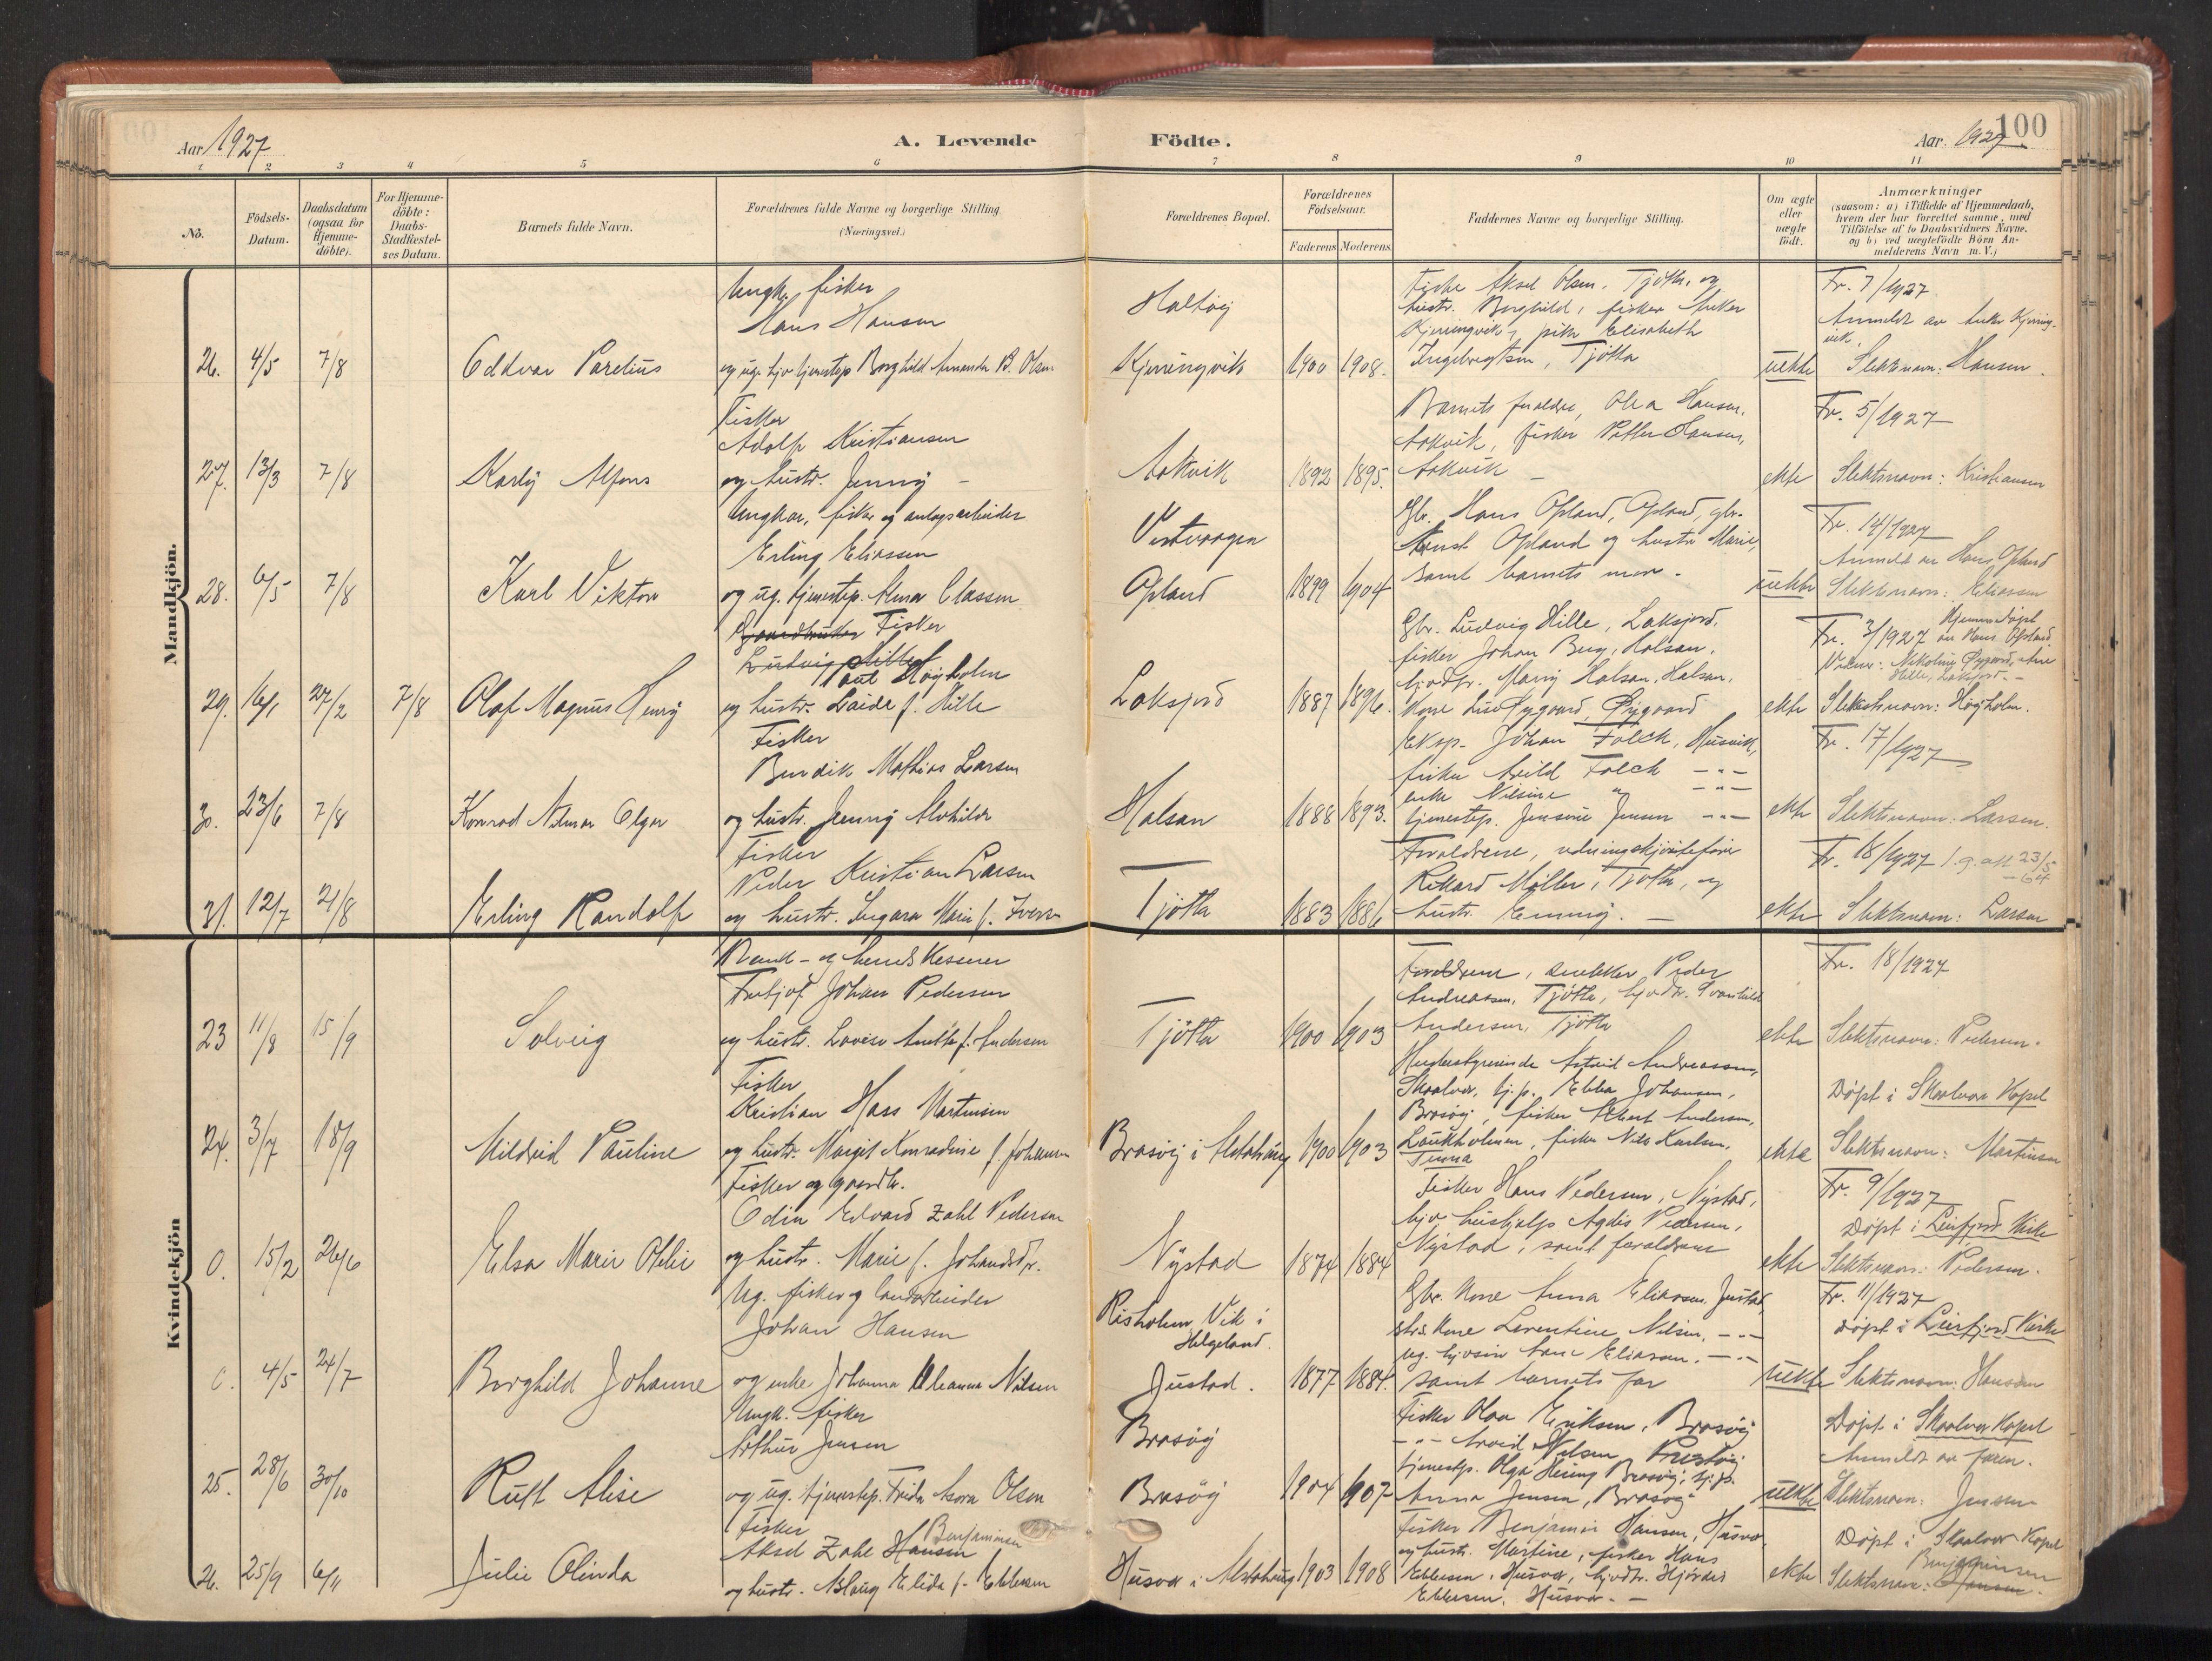 Aar 1927
A. Levende
Födte.
Aar. 1927
100
1 2 3 4 5 6 7 8 9 10 11
No.
Födsels-
Datum.
Daabsdatum
(ogsaa for
Hjemme-
döbte).
For Hjemme-
döbte:
Daabs-
Stadfæstel-
ses Datum.
Barnets fulde Navn.
Forældrenes fulde Navne og borgerlige Stilling
(Næringsvei.)
Forældrenes Bopæl.
Forældrenes
Födselsaar.
Faderens Moderens
Faddernes Navne og borgerlige Stilling.
Om ægte
eller
uægte
födt.
Anmærkninger
(saasom: a) i Tilfælde af Hjemmedaab,
hvem der har forrettet samme, med
Tilföielse af to Daabsvidners Navne.
og b) ved uægtefödte Börn An-
melderens Navn m. V.)
Mandkjön.
26. 4/5 7/8
Oddvar Parelius
Ungk. fisker
Hans Hansen
og ug. hjv. tjenestep Borghild Amanda B. Olsen
Haltøy
Kjerringvik
1900 1908.
Fisker Aksel Olsen, Tjøtta, og
hustr. Borghild, fisker Anker
Kjerringvik, pike Elisabeth
Ingebrigtsen, Tjøtta
uekte
Fr. 7/1927
Anmeldt av Anker Kjerring-
vik.
Slektsnavn: Hansen.
27. 13/3 7/8
Karly Alfons
Fisker
Adolf Kristiansen
og hustr. Jenny -
Aakvik
1892 1895.
Barnets foreldre, Olea Hansen,
Aakvik, fisker Petter Hansen,
Aakvik -
ekte
Fr. 5/1927
Slektsnavn: Kristiansen
28. 6/5 7/8
Karl Viktor
Ungkar, fisker og anlægsarbeider
Erling Eliassen
og ug. tjenestep. Alma Classen
Vistvaagen
Opland
1899 1904
Gbr. Hans Opland, Opland, gbr.
Ernst Opland og hustr Marie,
samt barnets mor.
uekte
Fr. 14/1927
Anmeldt av Hans Opland
Slektsnavn: Eliassen
29. 16/1 27/2 7/8
Olaf Magnus Henry
Gaardbruker Fisker
Ludvig Hille
Paul Høgholm
og hustr. Laide f. Hille
Laksjord
1887 1896.
Gbr. Ludvig Hille, Laksjord,
fisker Johan Berg, Halsan,
hjvdtr. Marry Halsan, Halsan,
Kone Lise Øygaard, Øygaard
ekte
Fr. 3/1927 Hjemmedøpt
av Hans Opland
Vidner: Nikoline Øygaard, Ane
Hille, Laksjord. -
Slektsnavn: Høgholm.
30. 23/6 7/8
Konrad Nilmar Olger
Fisker
Bendik Mathias Larsen
og hustr. Jenny Alvhilde
Halsan
1888 1893.
Eksp. Johan Falch, Husvik,
fisker Arild Falch - " -
enke Nilsine " - " -
tjenestep. Jensine Jensen - " -
ekte
Fr. 17/1927
Slektsnavn: Larsen.
31. 12/7 21/8
Erling Randolf
Fisker
Peder Kristian Larsen
og hustr. Ingara Marie f. Iversen
Tjøtta
1883 1886
Foreldrene, redningsskjøitefører
Rikard Møller, Tjøtta, og
hustr. Emmy. -
ekte
Fr. 18/1927 l.g. att 23/5
-64
Slektsnavn: Larsen
Kvindekjön
23 11/8 15/9
Solveig
Mand- og herreds Kasserer
Fritjof Johan Pedersen
og hustr. Lovise Anette f. Andersen
Tjøtta
1900 1903
Foreldrene, snekker Peder
Andreassen, Tjøtta, hjvdtr. Svanhild
Andersen, Tjøtta
ekte
Fr. 18/1927
Slektsnavn: Pedersen.
24. 3/7 18/9
Mildrid Pauline
Fisker
Kristian Hass Martinsen
og hustr. Margit Konradine f. Johansen
Brasøy i Alstahaug
1900 1903
Husbestyrerinde Astrid Andreassen,
Skaalvær, hj.p. Ebba Johansen,
Brasøy, fisker Albert Andersen,
Laukholmen, fisker Nils Karlsen,
Tenna
ekte
Døpt i Skaalvær Kapel
Slektsnavn: Martinsen
0. 15/2 26/6
Elsa Marie Otelie
Fisker og gaardbr.
Odin Edvard Zahl Pedersen
og hustr. Marie f. Johansdtr.
Nystad
1874 1884
Fisker Hans Pedersen, Nystad,
hjv. hushjelp Agdis Pedersen,
Nystad, samt foreldrene
ekte
Fr. 9/1927
Døpt i Leirfjord Kirke
Slektsnavn: Pedersen.
0. 4/5 24/7
Borghild Johanne
Ug. fisker og landarbeider
Johan Hansen
og enke Johanna Eleanna Nilsen
Risholmen, Vik i
Helgeland.
Justad.
1877 1884.
Gbr. Kone Anna Eliassen, Justad,
Kone Lorentine Nilsen, - " -
ug. Ane Eliassen. - " -
samt barnets far
uekte
Fr. 11/1927
døpt i Leirfjord Kirke
Slektsnavn: Hansen
25. 28/6 30/10
Ruth Alise
Ungk. fisker
Arthur Jensen
og ug. tjenestep. Frida Asora Olsen
Brasøy
Brasøy
1904 1907
Fisker Olaa Eriksen, Brasøy
- " - Arvid Nilsen Prestøy
tjenestep. Olga Brasøy, hj.p.
Anna Jensen, Brasøy
uekte
Døpt i Skaalvær Kapel
Anmeldt av faren.
Slektsnavn: Jensen
26. 25/9 6/11
Julie Olinda
Fisker
Aksel Zahl Hansen Benjaminsen
og hustr. Aslaug Elida f. Ebbesen
Husvær i Alstahaug
1903 1908
Fisker Benjamin Hansen, Husvær,
og hustr. Martine, fisker Hans
Ebbesen, Husvær, hjvdtr. Hjørdis
Ebbesen, Husvær. -
ekte
Døpt i Skaalvær Kapel
Benjaminsen
Slektsnavn: Hansen.